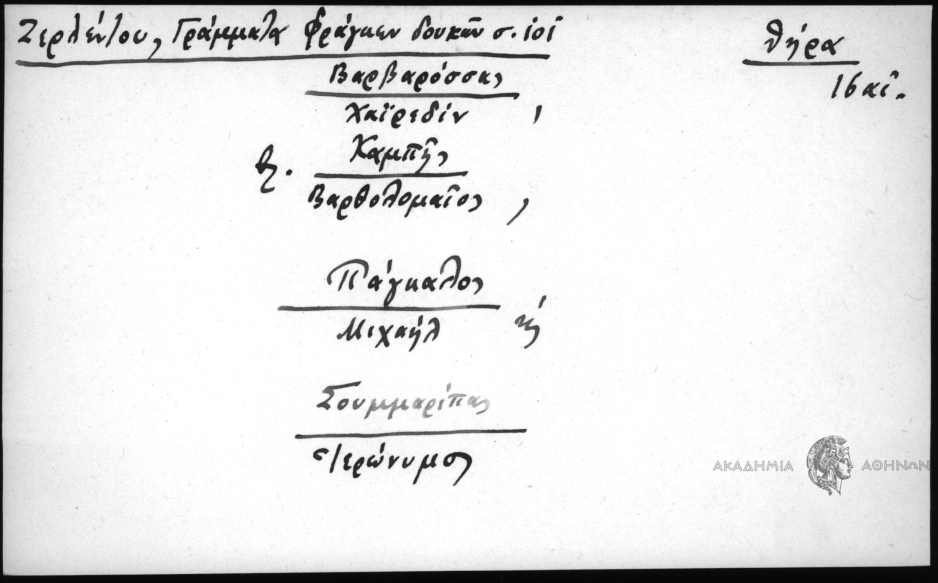 Ζερλέντου, Γράμματα Φράγκων δουκῶν σ. ιοϊ
Θήρα
16 αἰ.
Βαρβαρόσσας
Χαϊρεδίν ,
Καμπῆς
Βαρθολομαῖος ,
Πάγκαλος
Μιχαήλ
Σουμμαρίπας
Ἱερώνυμος
ΑΚΑΔΗΜΙΑ ΑΘΗΝΩΝ